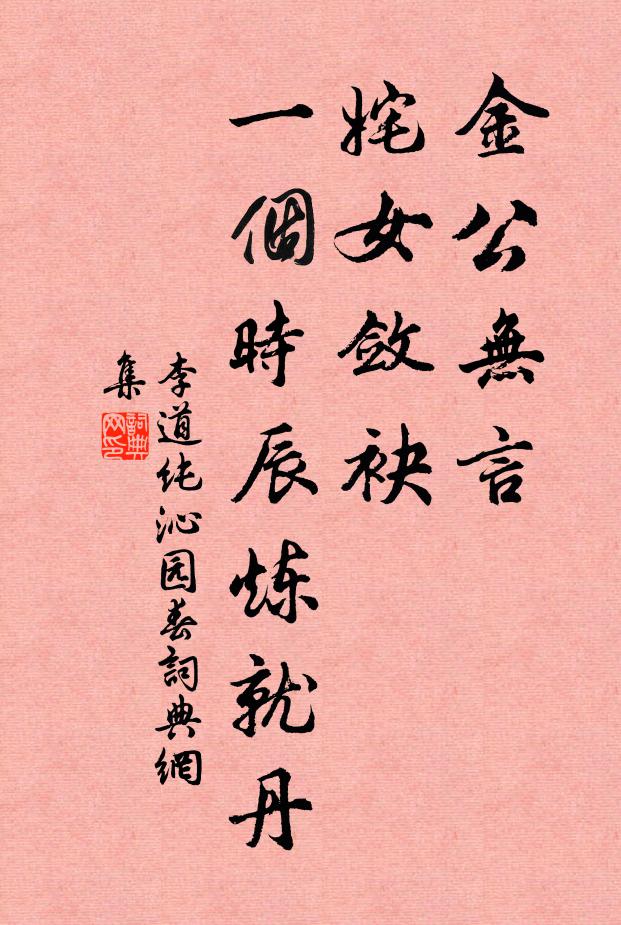 金公無言
姹女斂袂
一個時辰炼就丹
李道纯沁园春詞典網
集
詞典网印